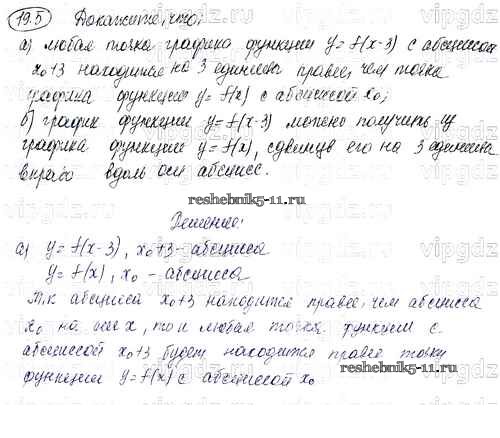 19.5 Докажите, что:
а) любая точка графика функции y=f(x-3) с абсциссой
x₀+3 находится на 3 единицы правее, чем точка
графика функции y=f(x) с абсциссой x₀;
б) график функции y=f(x-3) можно получить из
графика функции y=f(x), сдвинув его на 3 единицы
вправо вдоль оси абсцисс.
reshebnik5-11.ru
Решение:
а) y=f(x-3), x₀+3 - абсцисса
y=f(x), x₀ - абсцисса
т.к абсциссой x₀+3 находится правее, чем абсцисса
x₀ на оси x, то и любая точка функции с
абсциссой x₀+3 будет находится правее точки
функции y=f(x) с абсциссой x₀
reshebnik5-11.ru